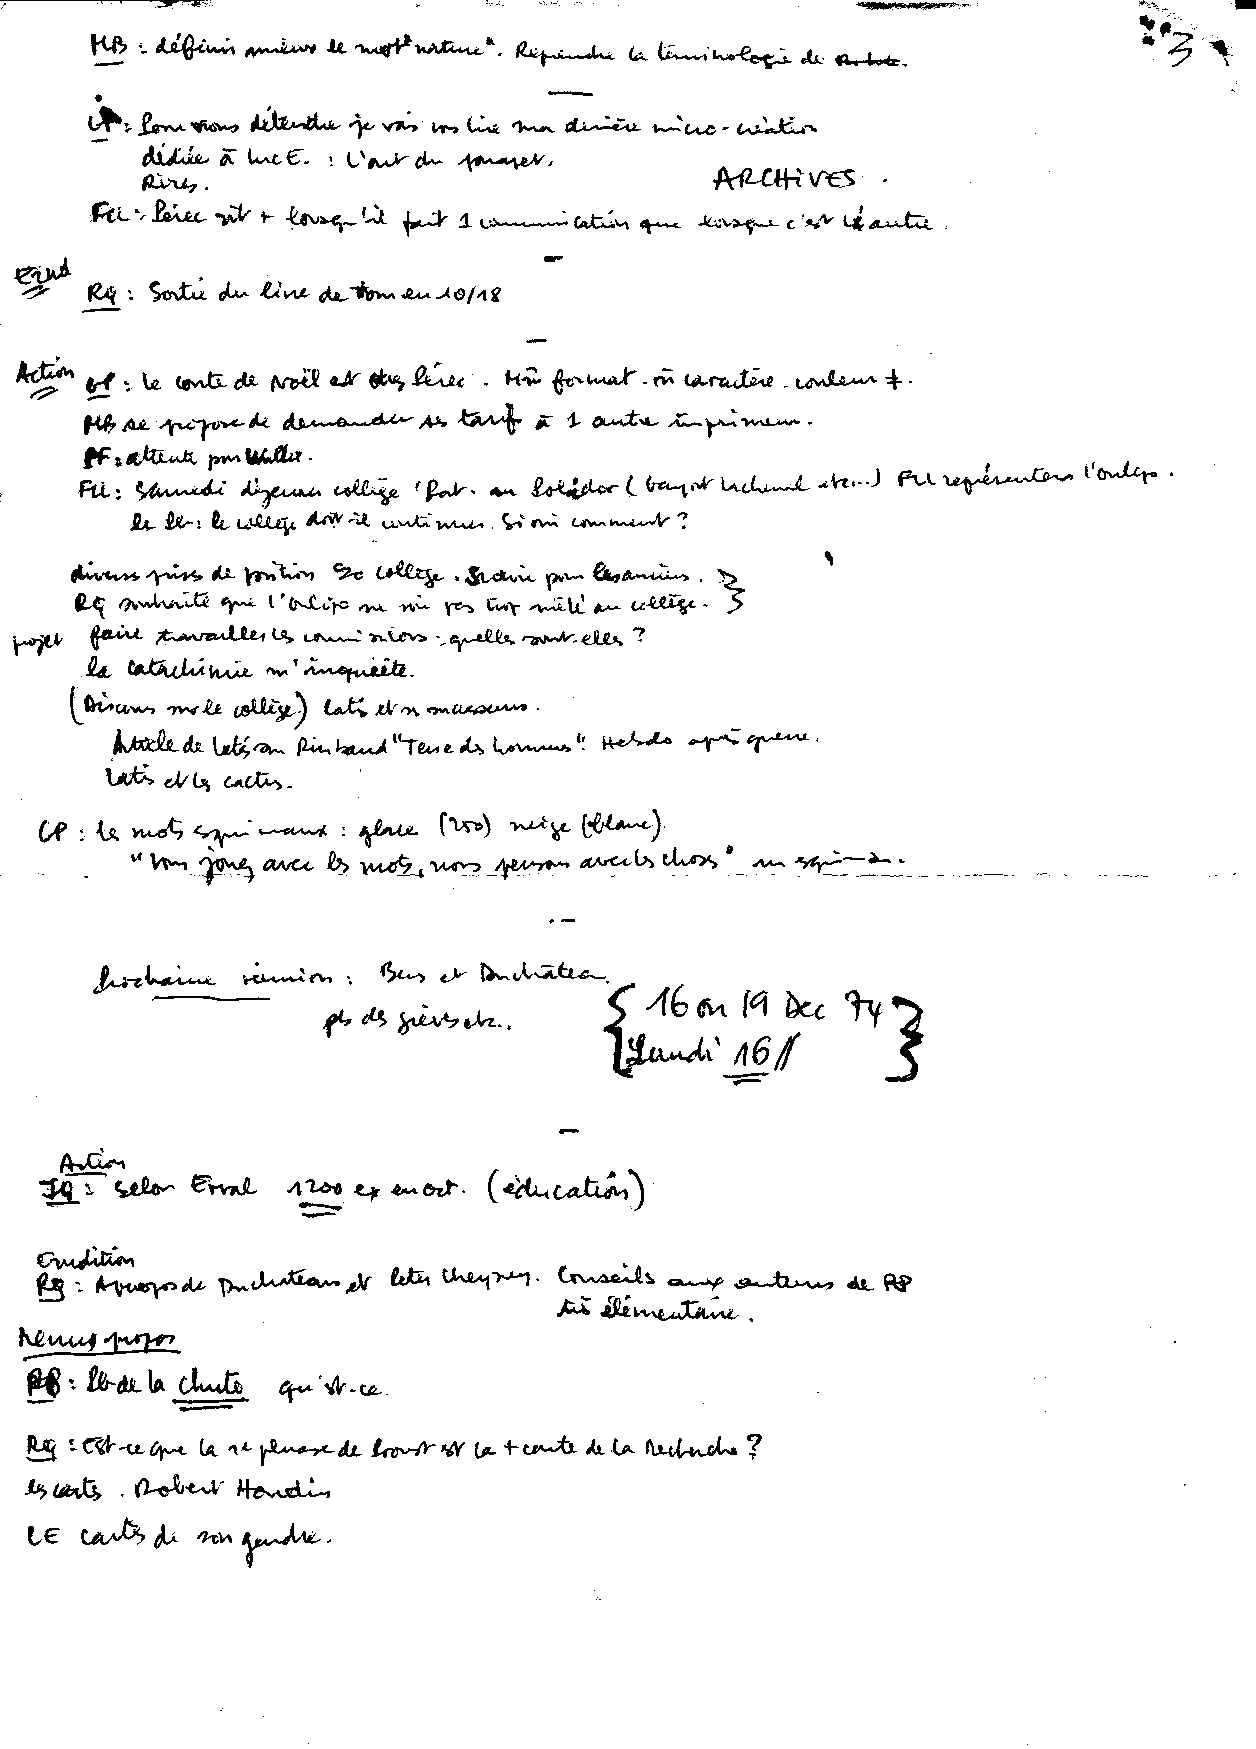 3
MB : définir mieux le mot "nature". Reprendre la terminologie de
GP : Pour vous détendre je vais vous lire ma dernière micro-création
dédiée à Luc E. : L'art du
Rires.
ARCHIVES .
FLL : Pérec rit + lorsqu'il fait 1 communication que lorsque c'est 1 autre.
Erud
RQ : Sortie du livre de Tom en 10/18
Action
GP : le conte de Noël est chez Pérec. Mm format. m caractère. couleur ≠.
MB se propose de demander ses tarifs à 1 autre imprimeur.
PF : attente pour
FLL : Samedi déjeuner collège 'Pat. au Polidor ( etc...) FLL représentera l'oulipo.
le Pb : le collège doit-il continuer. Si oui comment ?
diverses prises de position collège. pour les anciens.
RQ souhaite que l'oulipo ne soit pas trop mêlé au collège.
projet
faire travailler les commissions : quelles sont-elles ?
la catachimie m'inquiète.
(Discours sur le collège) Latis et
Article de Latis sur Rimbaud "Terre des hommes". Hebdo après guerre.
Latis et les cactus.
GP : les mots esquimaux : glace (200) neige (blanc)
"Vous jouez avec les mots, nous pensons avec les choses" un
Prochaine réunion : Bens et Duchâteau.
pb des grèves etc..
16 ou 19 Dec 74
Lundi 16
Action
JQ : Selon Erval 1200 ex en oct. (éducation)
Erudition
RQ : A propos de Duchateau et Peter Cheyney. Conseils aux auteurs de RP
très élémentaire.
Menus propos
: Pb de la chute qu'est-ce.
RQ : Est-ce que la 1e phrase de Proust est la + courte de la Recherche ?
les cartes . Robert Houdin
LE cartes de son gendre.